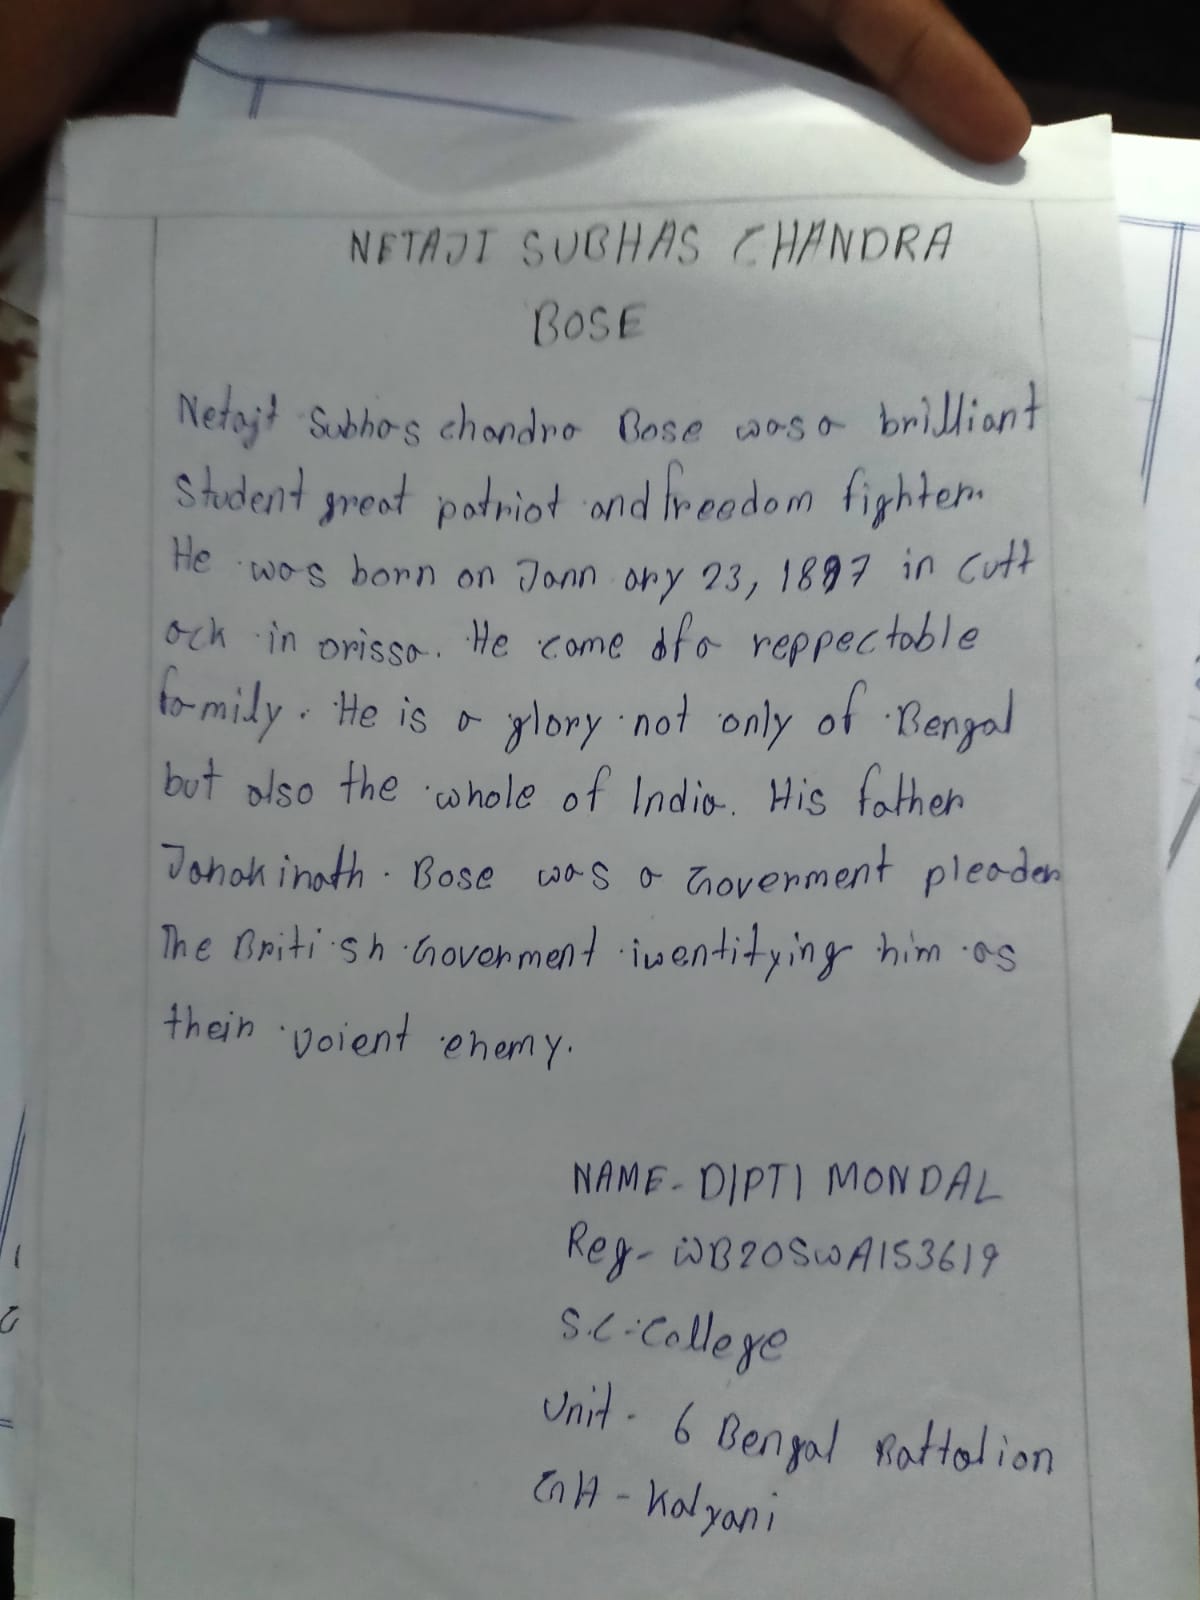 NETAJI SUBHAS CHANDRA
BOSE
Netaji Subhas chandra Bose was a brilliant
Student great patriot and freedom fighter.
He was born on Jann ary 23, 1897 in Cutt
ack in orissa. He come of a reppectable
family. He is a glory not only of Bengal
but also the whole of India. His father
Janakinath Bose was a Goverment pleader
The Briti sh Goverment iwentitying him as
their voient enemy.
NAME- DIPTI MONDAL
Reg- WB20SWA153619
S.C-College
Unit - 6 Bengal Battalion
GH - Kalyani